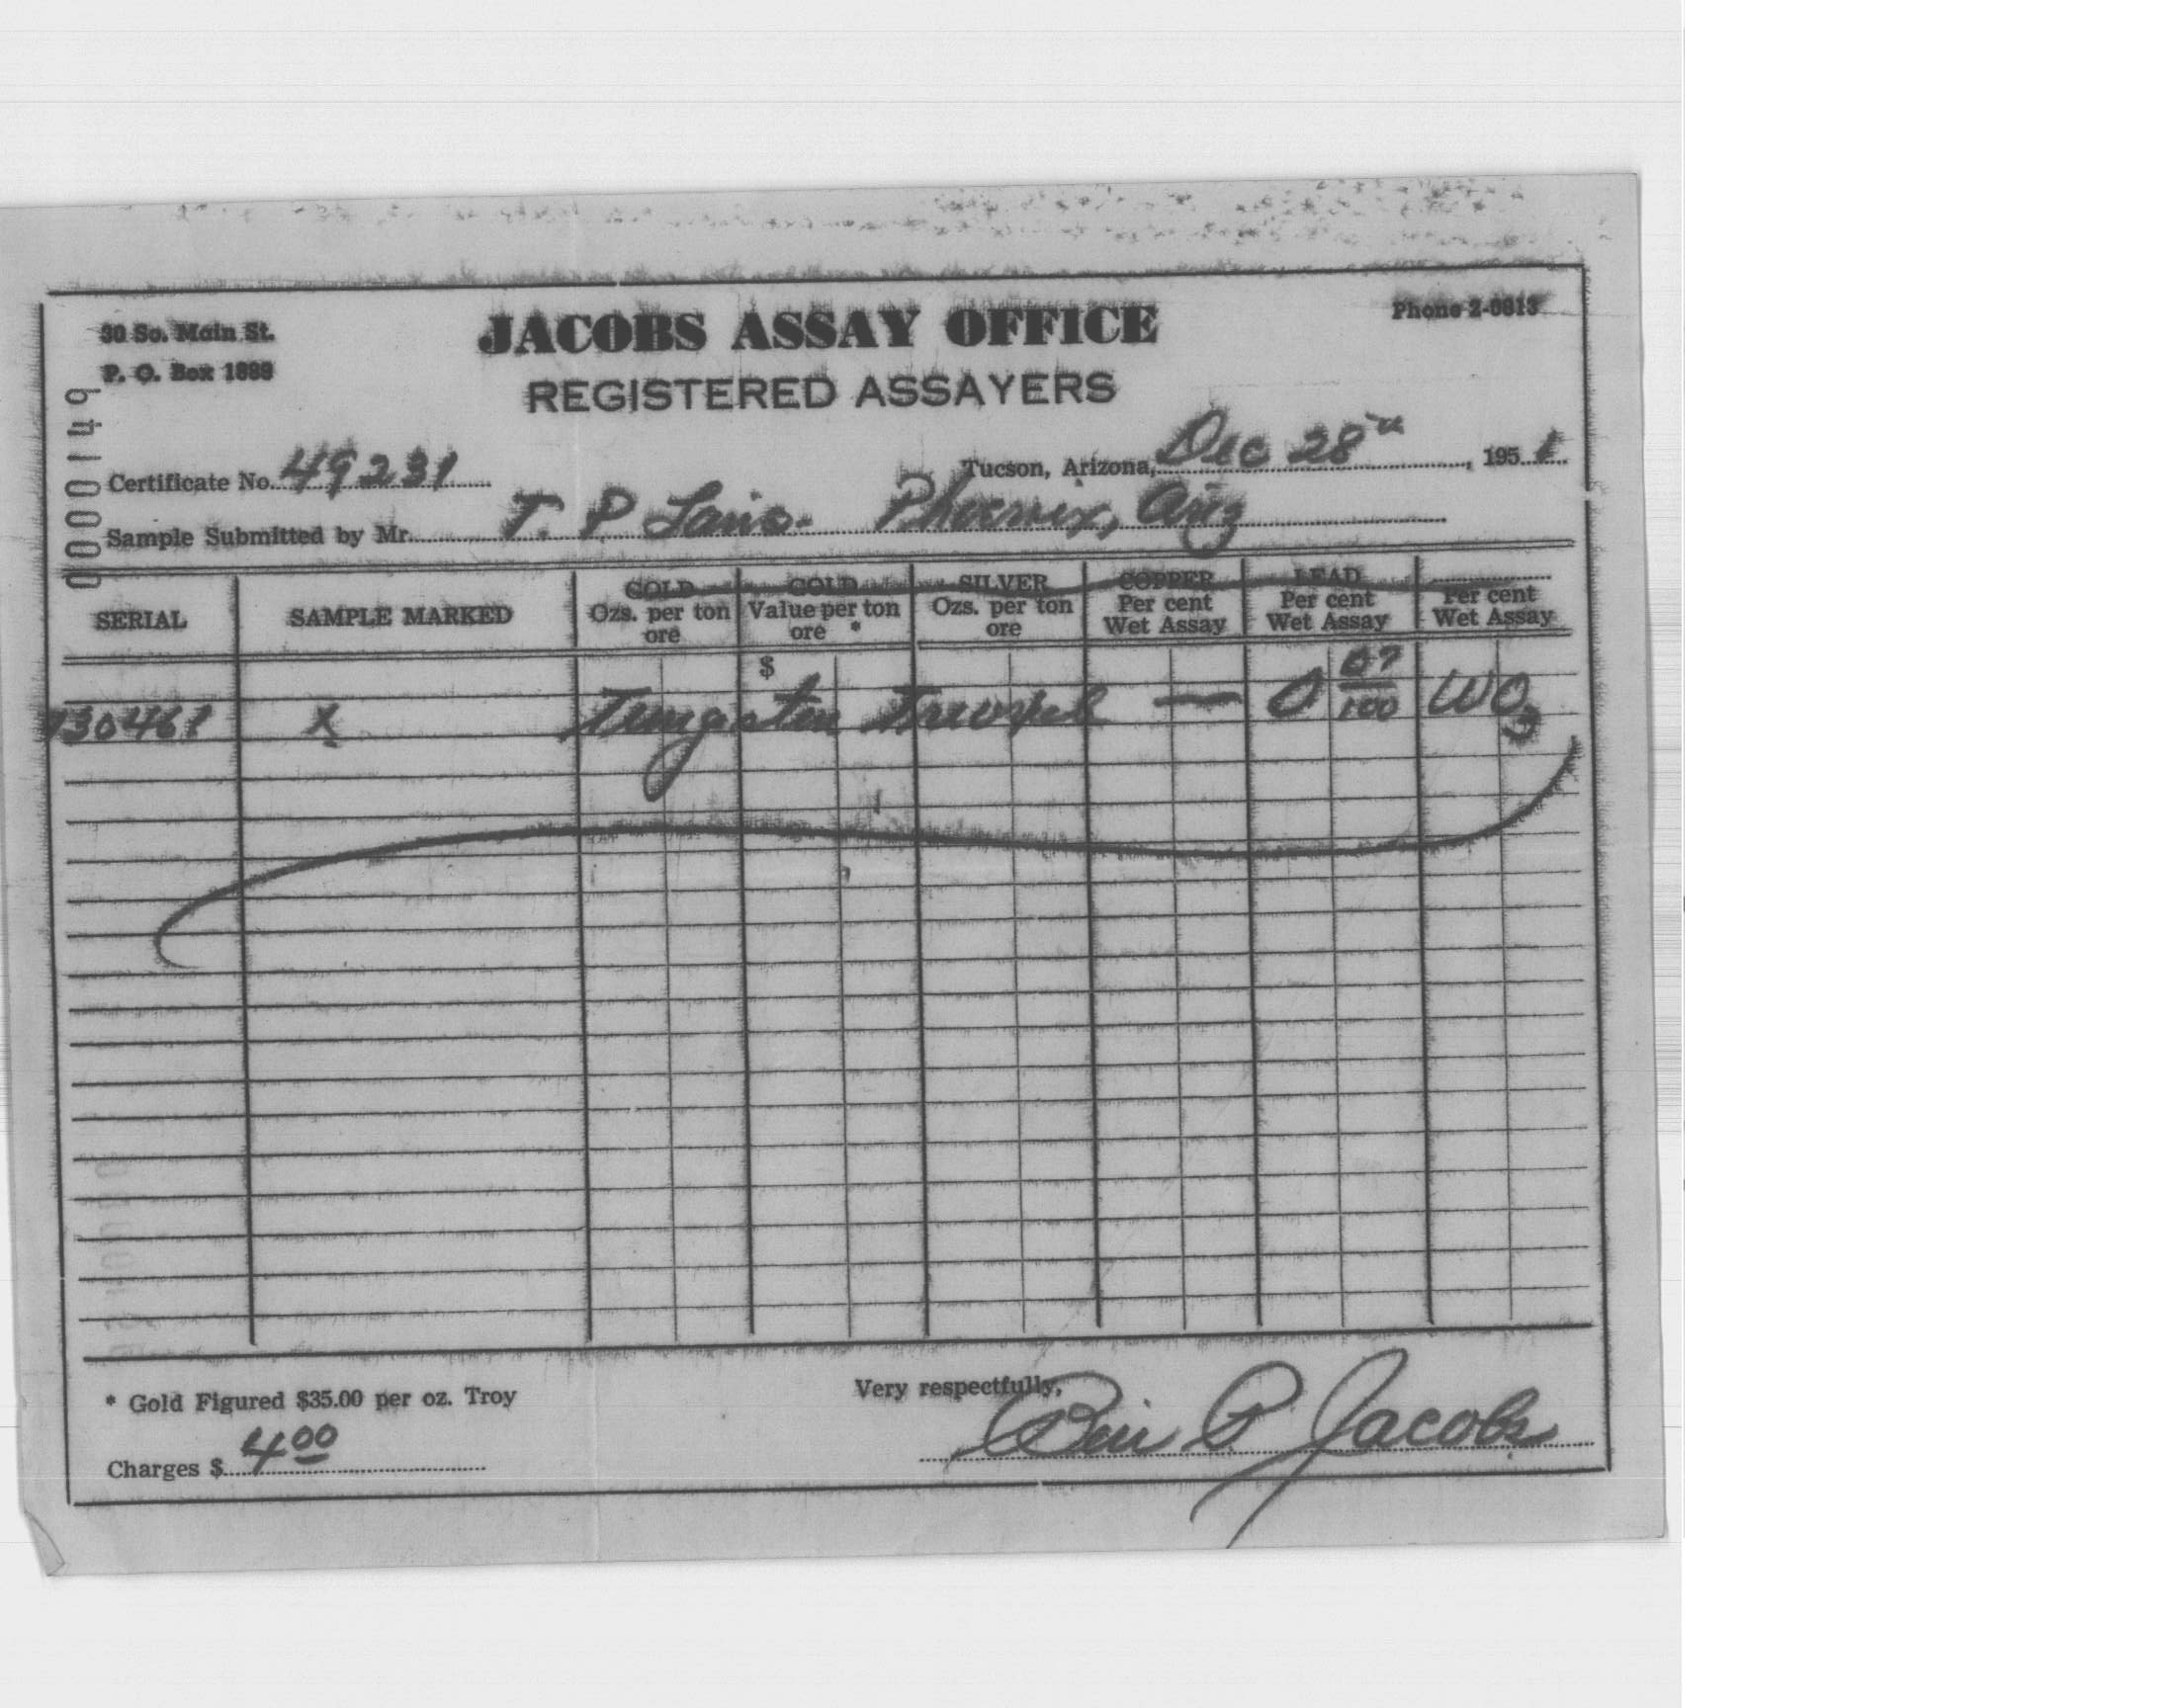 30 So. Main St.
P. O. Box 1888
JACOBS ASSAY OFFICE
REGISTERED ASSAYERS
Phone 2-0813
000149
Certificate No. 49231
Tucson, Arizona, Dec 28th, 1951
Sample Submitted by Mr. T. P. Phoenix, Ariz
SERIAL SAMPLE MARKED GOLD Ozs. per ton ore GOLD Value per ton ore * SILVER Ozs. per ton ore COPPER Per cent Wet Assay LEAD Per cent Wet Assay Per cent Wet Assay
$
130461 X Tungsten — 0 07/100 WO3
* Gold Figured $35.00 per oz. Troy
Very respectfully,
Charges $ 4 00
Ben P Jacobs